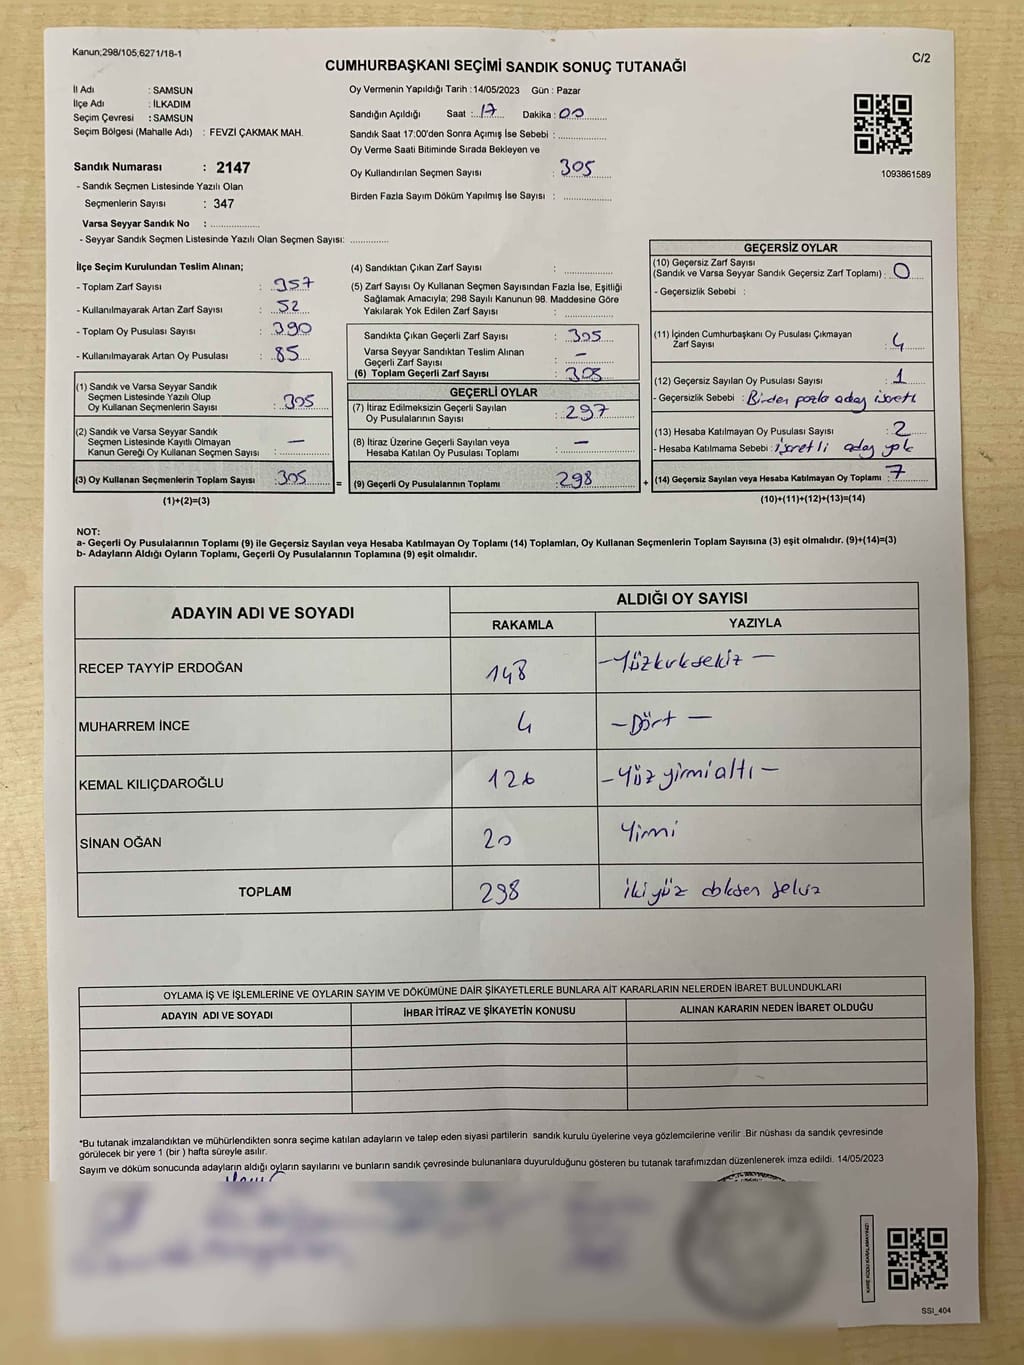 Kanun;298/105;6271/18-1
C/2
CUMHURBAŞKANI SEÇİMİ SANDIK SONUÇ TUTANAĞI
İl Adı : SAMSUN
İlçe Adı : İLKADIM
Seçim Çevresi : SAMSUN
Seçim Bölgesi (Mahalle Adı) : FEVZİ ÇAKMAK MAH.
Sandık Numarası : 2147
- Sandık Seçmen Listesinde Yazılı Olan
Seçmenlerin Sayısı : 347
Varsa Seyyar Sandık No : ..................
- Seyyar Sandık Seçmen Listesinde Yazılı Olan Seçmen Sayısı: ..............
Oy Vermenin Yapıldığı Tarih :14/05/2023 Gün : Pazar
Sandığın Açıldığı Saat : 17 Dakika : 00
Sandık Saat 17:00'den Sonra Açımış İse Sebebi : ..................
Oy Verme Saati Bitiminde Sırada Bekleyen ve
Oy Kullandırılan Seçmen Sayısı : 305
Birden Fazla Sayım Döküm Yapılmış İse Sayısı : ..................
1093861589
İlçe Seçim Kurulundan Teslim Alınan;
- Toplam Zarf Sayısı : 357
- Kullanılmayarak Artan Zarf Sayısı : 52
- Toplam Oy Pusulası Sayısı : 390
- Kullanılmayarak Artan Oy Pusulası : 85
(1) Sandık ve Varsa Seyyar Sandık
Seçmen Listesinde Yazılı Olup
Oy Kullanan Seçmenlerin Sayısı : 305
(2) Sandık ve Varsa Seyyar Sandık
Seçmen Listesinde Kayıtlı Olmayan
Kanun Gereği Oy Kullanan Seçmen Sayısı : —
(3) Oy Kullanan Seçmenlerin Toplam Sayısı : 305 =
(1)+(2)=(3)
(4) Sandıktan Çıkan Zarf Sayısı : ..................
(5) Zarf Sayısı Oy Kullanan Seçmen Sayısından Fazla İse, Eşitliği
Sağlamak Amacıyla; 298 Sayılı Kanunun 98. Maddesine Göre
Yakılarak Yok Edilen Zarf Sayısı : ..................
Sandıkta Çıkan Geçerli Zarf Sayısı : 305
Varsa Seyyar Sandıktan Teslim Alınan
Geçerli Zarf Sayısı : —
(6) Toplam Geçerli Zarf Sayısı : 305
GEÇERLİ OYLAR
(7) İtiraz Edilmeksizin Geçerli Sayılan
Oy Pusulalarının Sayısı : 297
(8) İtiraz Üzerine Geçerli Sayılan veya
Hesaba Katılan Oy Pusulası Toplamı : —
(9) Geçerli Oy Pusulalarının Toplamı : 298 +
GEÇERSİZ OYLAR
(10) Geçersiz Zarf Sayısı
(Sandık ve Varsa Seyyar Sandık Geçersiz Zarf Toplamı) : 0
- Geçersizlik Sebebi :
(11) İçinden Cumhurbaşkanı Oy Pusulası Çıkmayan
Zarf Sayısı : 4
(12) Geçersiz Sayılan Oy Pusulası Sayısı : 1
- Geçersizlik Sebebi : Birden fazla aday işareti
(13) Hesaba Katılmayan Oy Pusulası Sayısı : 2
- Hesaba Katılmama Sebebi : işaretli aday yok
(14) Geçersiz Sayılan veya Hesaba Katılmayan Oy Toplamı : 7
(10)+(11)+(12)+(13)=(14)
NOT:
a- Geçerli Oy Pusulalarının Toplamı (9) ile Geçersiz Sayılan veya Hesaba Katılmayan Oy Toplamı (14) Toplamları, Oy Kullanan Seçmenlerin Toplam Sayısına (3) eşit olmalıdır. (9)+(14)=(3)
b- Adayların Aldığı Oyların Toplamı, Geçerli Oy Pusulalarının Toplamına (9) eşit olmalıdır.
ADAYIN ADI VE SOYADI ALDIĞI OY SAYISI
RAKAMLA YAZIYLA
RECEP TAYYİP ERDOĞAN 148 —Yüzkırksekiz—
MUHARREM İNCE 4 —Dört—
KEMAL KILIÇDAROĞLU 126 —Yüz yirmialtı—
SİNAN OĞAN 20 Yirmi
TOPLAM 298 ikiyüz doksan sekiz
OYLAMA İŞ VE İŞLEMLERİNE VE OYLARIN SAYIM VE DÖKÜMÜNE DAİR ŞİKAYETLERLE BUNLARA AİT KARARLARIN NELERDEN İBARET BULUNDUKLARI
ADAYIN ADI VE SOYADI İHBAR İTİRAZ VE ŞİKAYETİN KONUSU ALINAN KARARIN NEDEN İBARET OLDUĞU
*Bu tutanak imzalandıktan ve mühürlendikten sonra seçime katılan adayların ve talep eden siyasi partilerin sandık kurulu üyelerine veya gözlemcilerine verilir .Bir nüshası da sandık çevresinde
görülecek bir yere 1 (bir ) hafta süreyle asılır.
Sayım ve döküm sonucunda adayların aldığı oyların sayılarını ve bunların sandık çevresinde bulunanlara duyurulduğunu gösteren bu tutanak tarafımızdan düzenlenerek imza edildi. 14/05/2023
KARE KODU KARALAMAYINIZ!
SSI_404